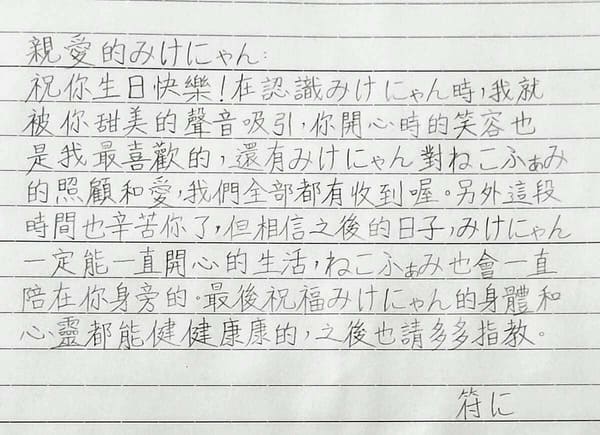 親愛的みけにゃん：
祝你生日快樂！在認識みけにゃん時，我就
被你甜美的聲音吸引，你開心時的笑容也
是我最喜歡的，還有みけにゃん對ねこふぁみ
的照顧和愛，我們全部都有收到喔。另外這段
時間也辛苦你了，但相信之後的日子，みけにゃん
一定能一直開心的生活，ねこふぁみ也會一直
陪在你身旁的。最後祝福みけにゃん的身體和
心靈都能健健康康的，之後也請多多指教。
符に